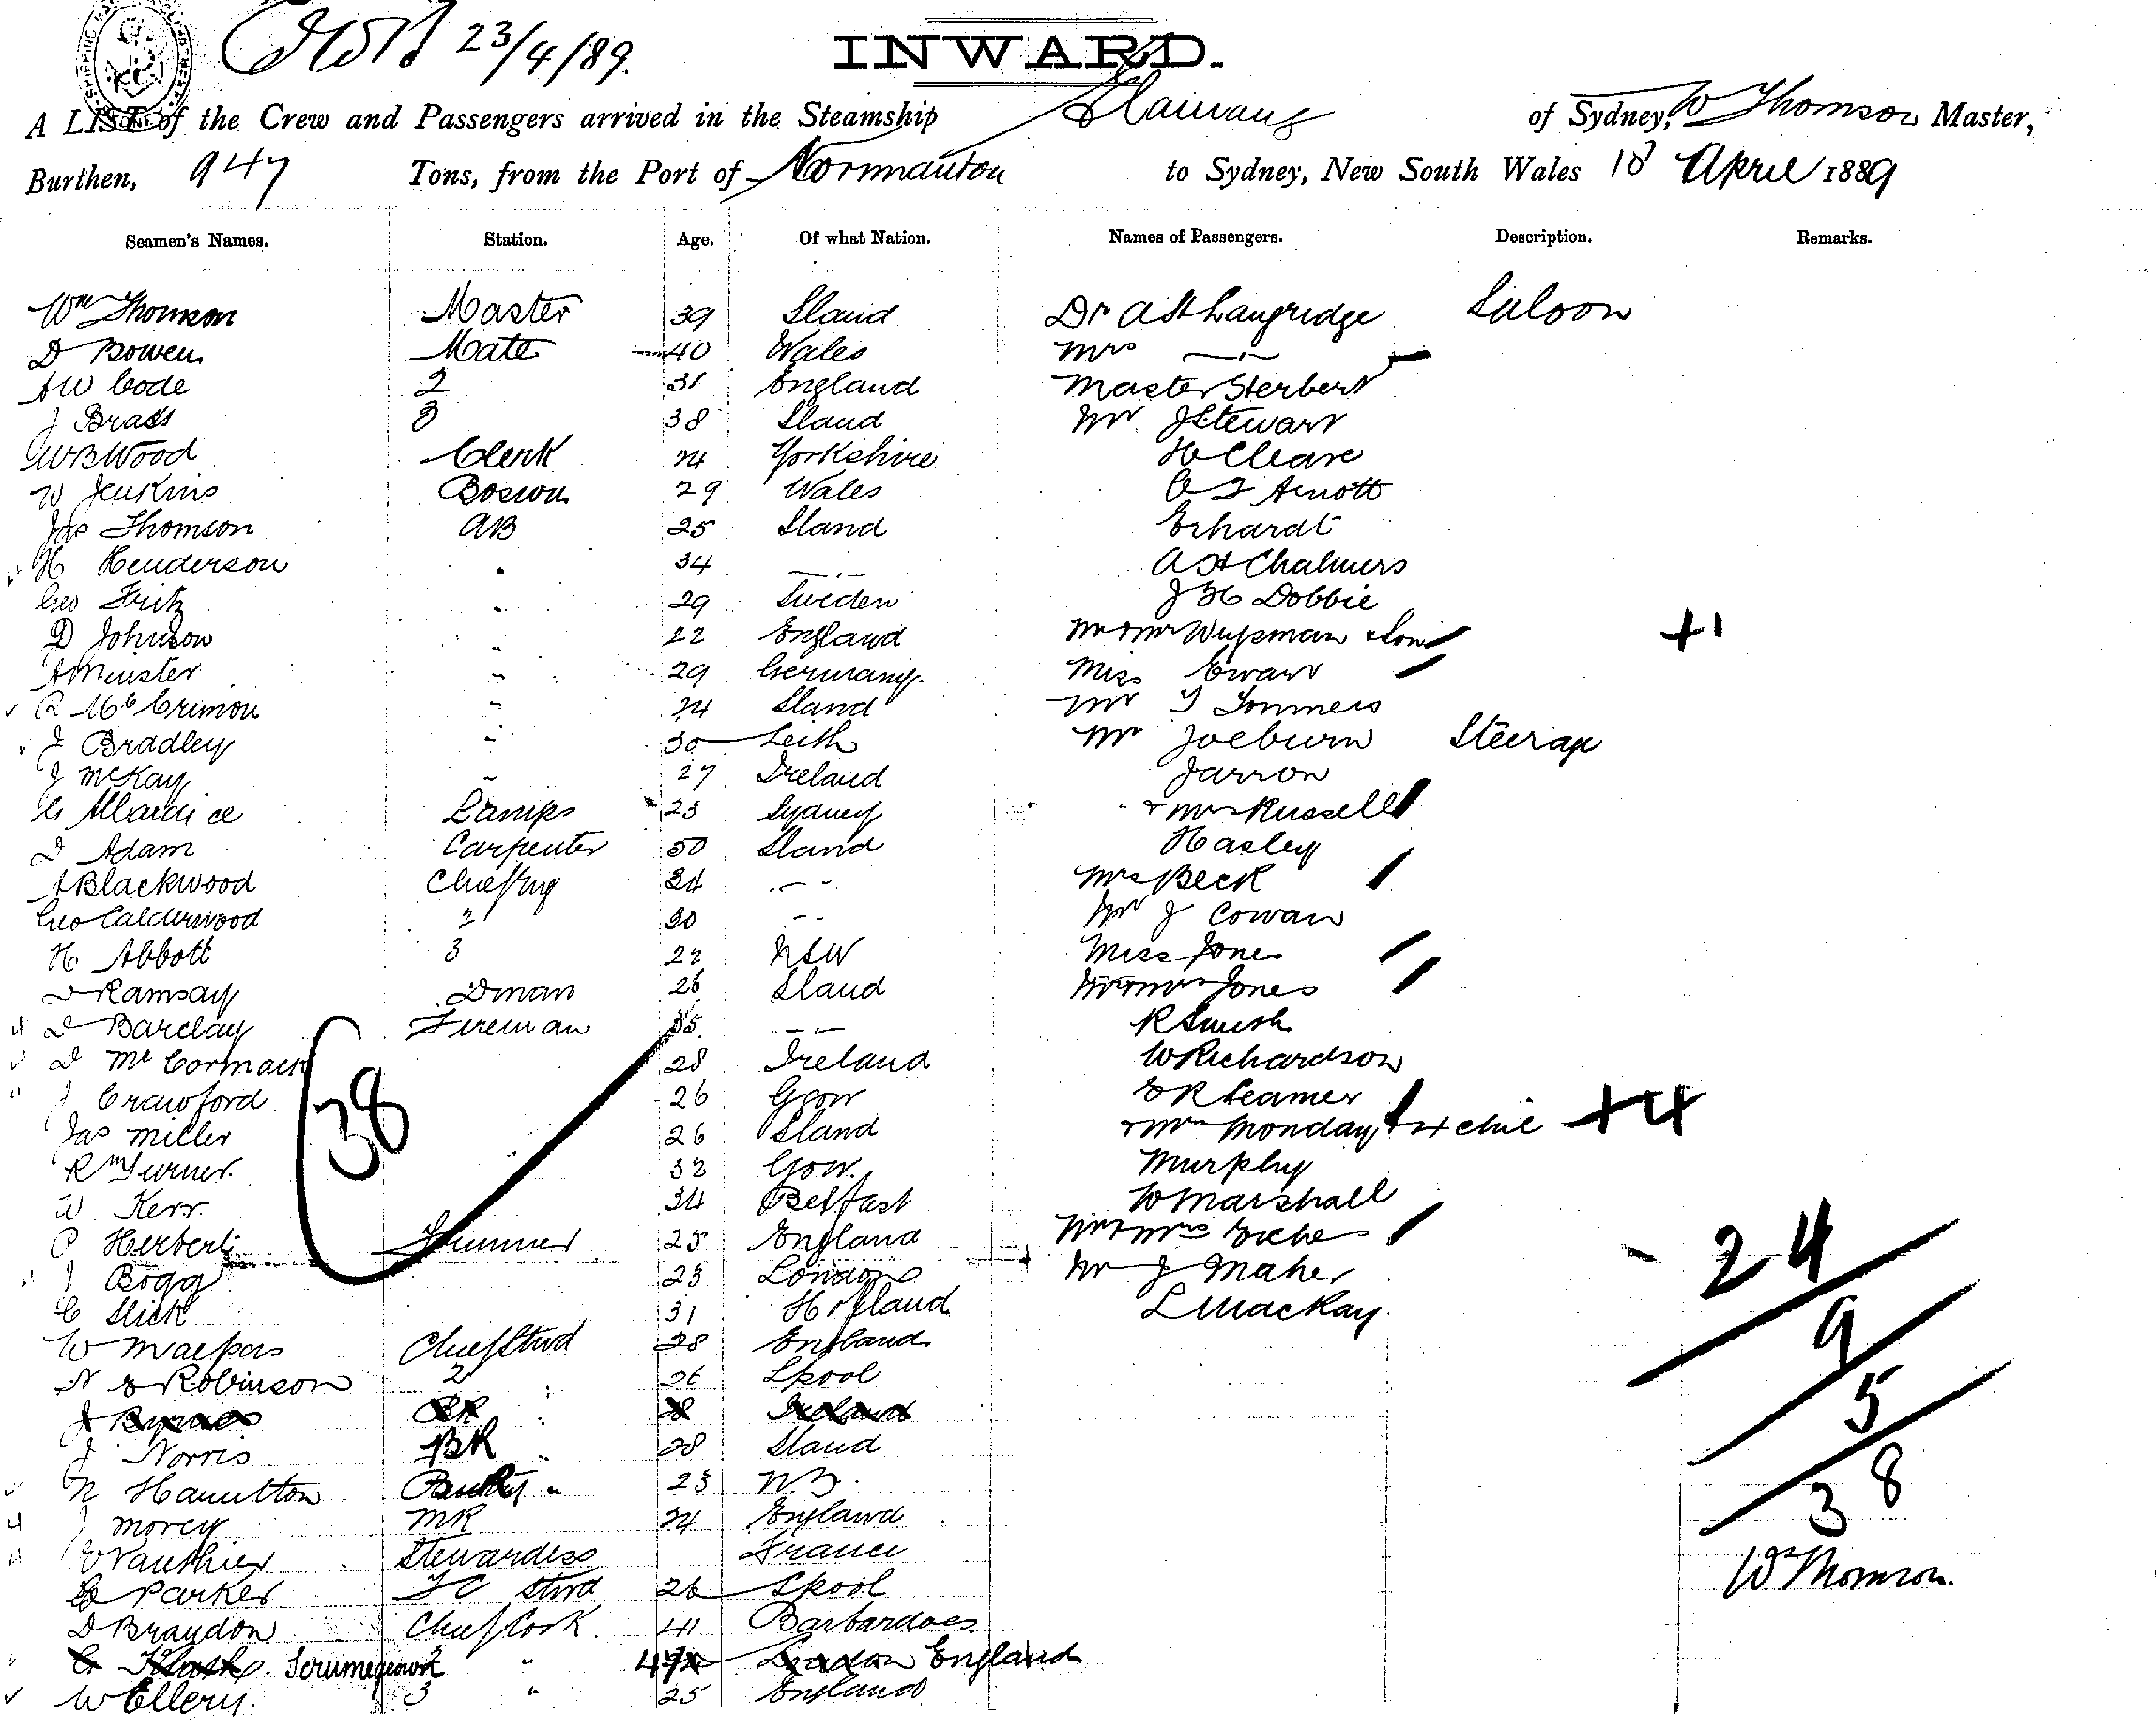 23/4/89.
INWARD.
A LIST of the Crew and Passengers arrived in the Steamship of Sydney, W Thomson Master,
Burthen, 947 Tons, from the Port of Normanton to Sydney, New South Wales 18 April 1889
Seamen's Names. Station. Age. Of what Nation. Names of Passengers. Description. Remarks.
Wm Thomson Master 39 Sland Dr A St Langridge Saloon
D Bowen Mate 40 Wales Mrs —"—
AW Code 2 31 England Master Herbert
J Brass 3 38 Sland Mr J Stewart
WB Wood Clerk 24 Yorkshire H Cleare
W Jenkins Boswn 29 Wales Arnott
Jas Thomson AB 25 Sland Erhardt
H Henderson " 34 —"— A H Chalmers
Geo Fritz " 29 Sweden J H Dobbie
D Johnson " 22 England Mr & Mrs Wupman & Son +1
A Meuster " 29 Germany. Miss Ewart
R McCrimon " 24 Sland Mr T Tommers
J Bradley " 30 Leith Mr Joeburn Steerage
J McKay " 27 Ireland Jarron
G Allardice Lamps 23 Sydney " & Mrs Russell
D Adam Carpenter 50 Sland Hasley
A Blackwood Chief Eng 34 —"— Mrs Beck
Geo Calderwood 2 30 —"— Mr J Cowan
H Abbott 3 22 NSW Miss Jones
D Ramsay Dman 26 Sland Mr & Mrs Jones
D Barclay Fireman 35 —"— R Smith
D McCormack 28 Ireland W Richardson
J Crawford 26 Gow E R Seamer
Jas Miller 26 Sland & Mrs Monday & 4 chil +4
38
Rm Turner 32 Gow. Murphy
W. Kerr 34 Belfast W Marshall
P Herbert Trimmer 25 England Mr & Mrs Eiche
J Bogg 23 London Mr J Maher 24
C Slick 31 Holland L MacKay. 9
W Macpas Chief Stwd 28 England
N E Robinson 2 " 26 Lpool 5
J Byrnes BR " 28 Ireland
J Norris BR " 28 Sland
N Hamilton Pantry " 23 NZ. 38
J Morey MR 24 England
Vauthier Stewardess France Wm Thomson.
G Parker FC Stwd 26 Lpool
D Braydon Chief Cook 41 Barbardoes
2 " 47 London England
W Ellery. 3 " 25 England